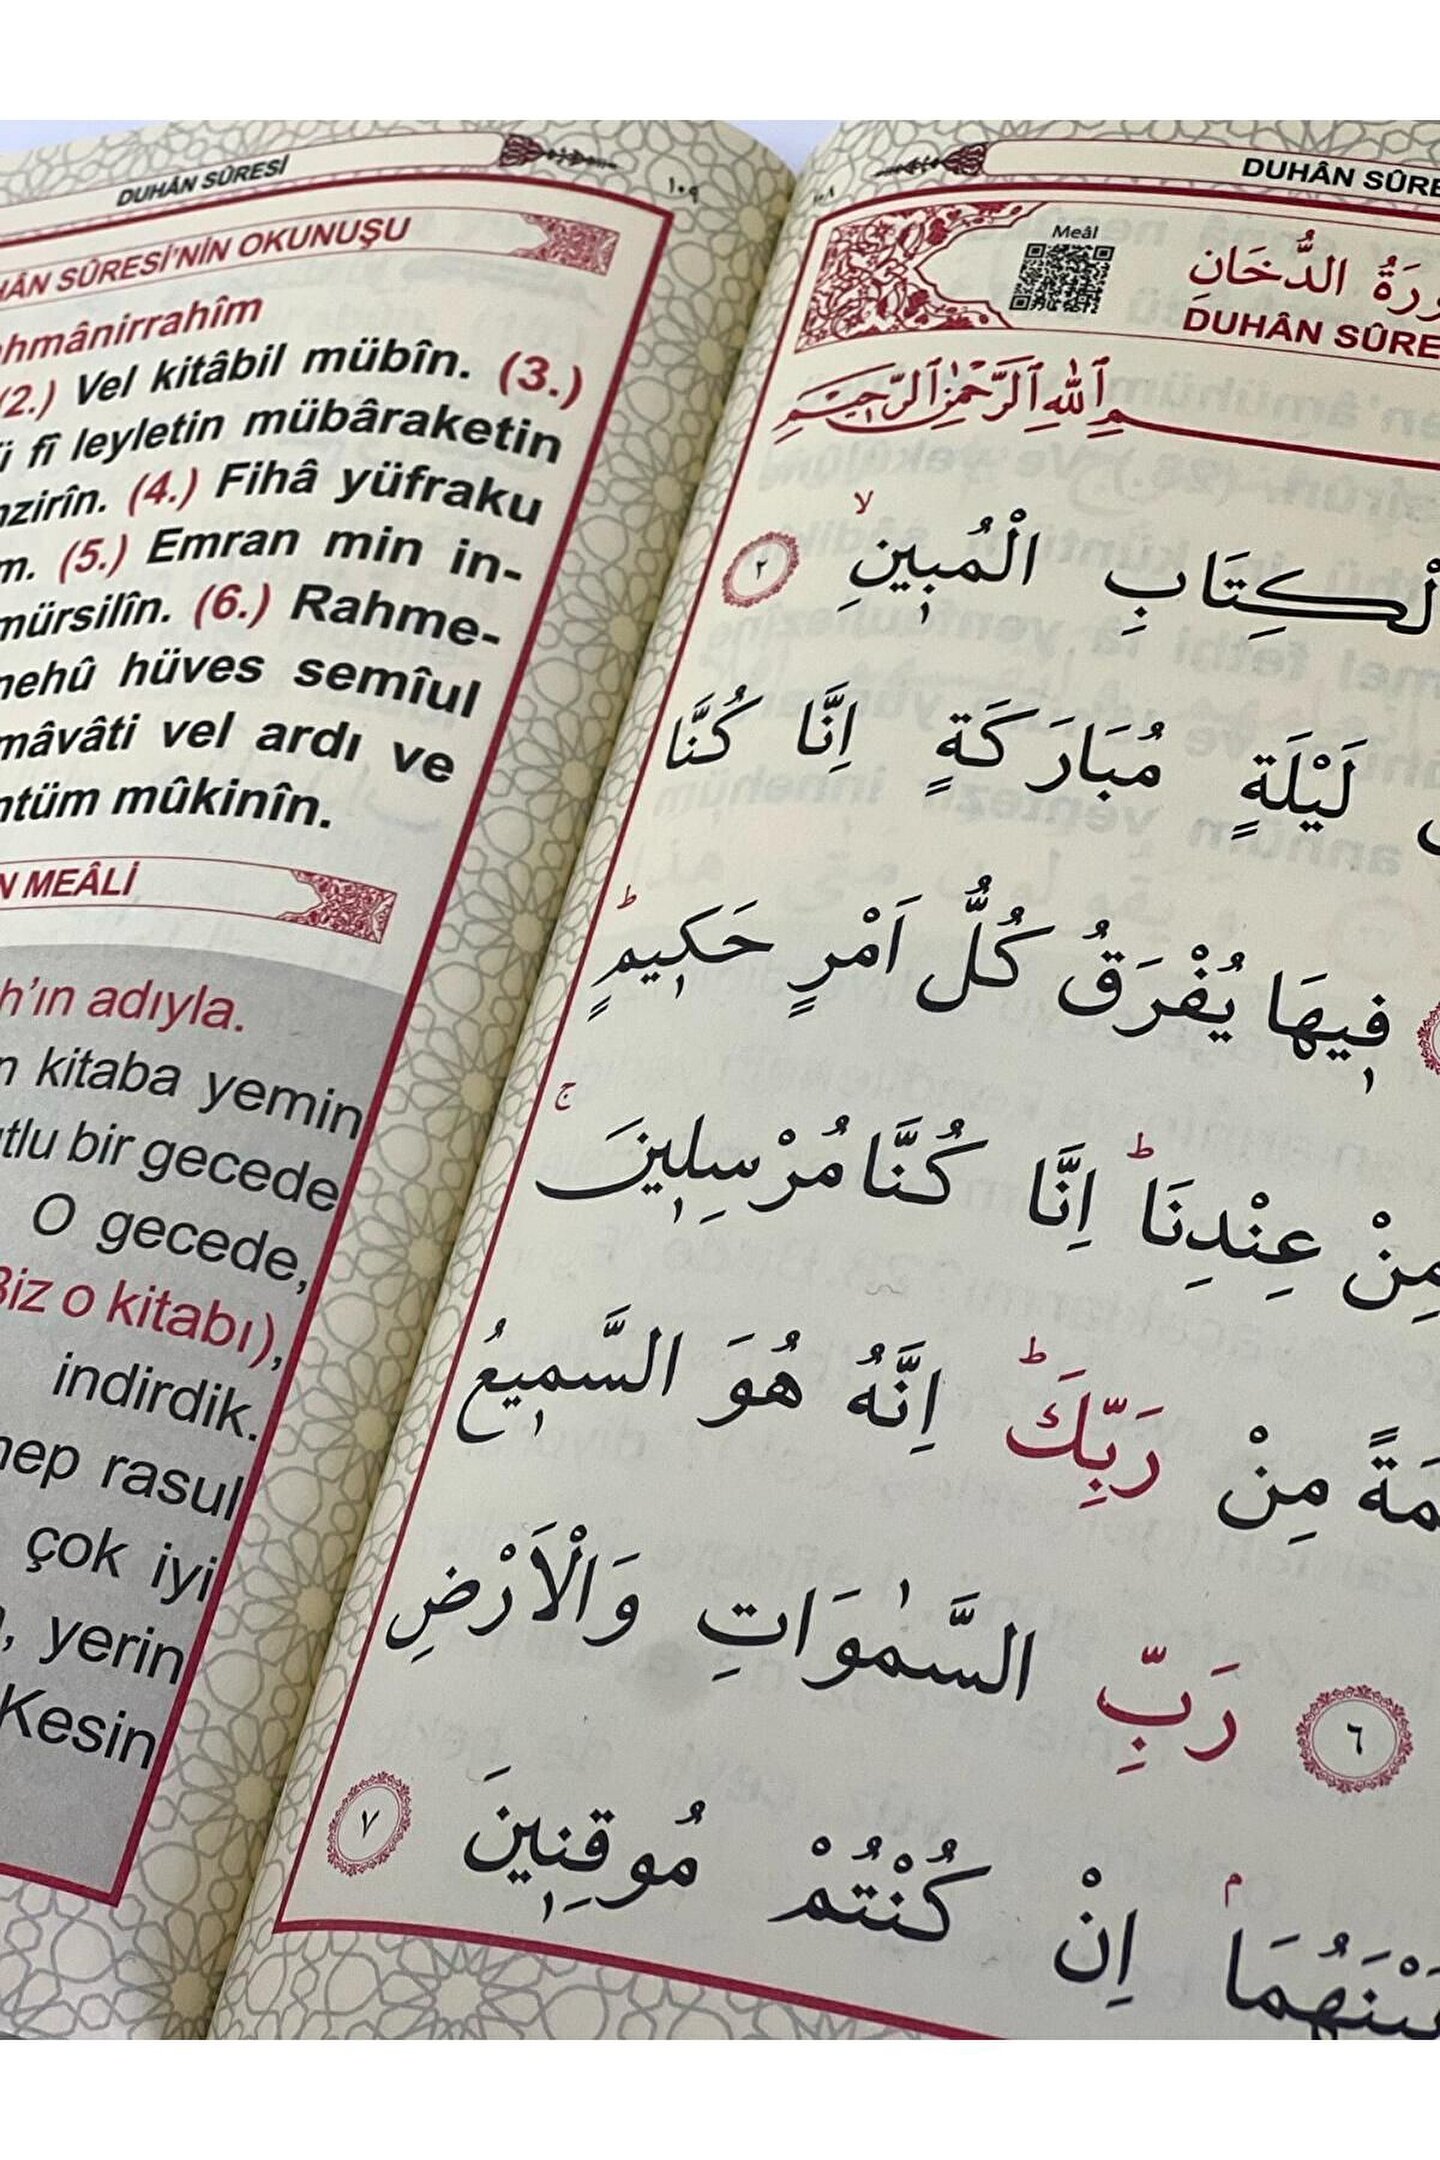 DUHÂN SÛRESİ
١٠٩
SÛRESİ'NİN OKUNUŞU
(2.) Vel kitâbil mübîn. (3.)
fî leyletin mübâraketin
(4.) Fihâ yüfraku
(5.) Emran min in-
mürsilîn. (6.) Rahme-
hüves semîul
vel ardı ve
mûkinîn.
MEÂLİ
adıyla.
kitaba yemin
bir gecede
O gecede,
Biz o kitabı),
indirdik.
rasul
çok iyi
yerin
Kesin
DUHÂN
١٠٨
Meâl
الدُّخَانِ
DUHÂN
اللهِ الرَّحْمٰنِ الرَّحِيمِ
الْمُبِينِۙ ٢
لَيْلَةٍ مُبَارَكَةٍ اِنَّا كُنَّا
فِيهَا يُفْرَقُ كُلُّ اَمْرٍ حَكِيمٍۜ
مِنْ عِنْدِنَاۜ اِنَّا كُنَّا مُرْسِلِينَۚ
مِنْ رَبِّكَۜ اِنَّهُ هُوَ السَّمِيعُ
٦ رَبِّ السَّمٰوَاتِ وَالْاَرْضِ
اِنْ كُنْتُمْ مُوقِنِينَ ٧